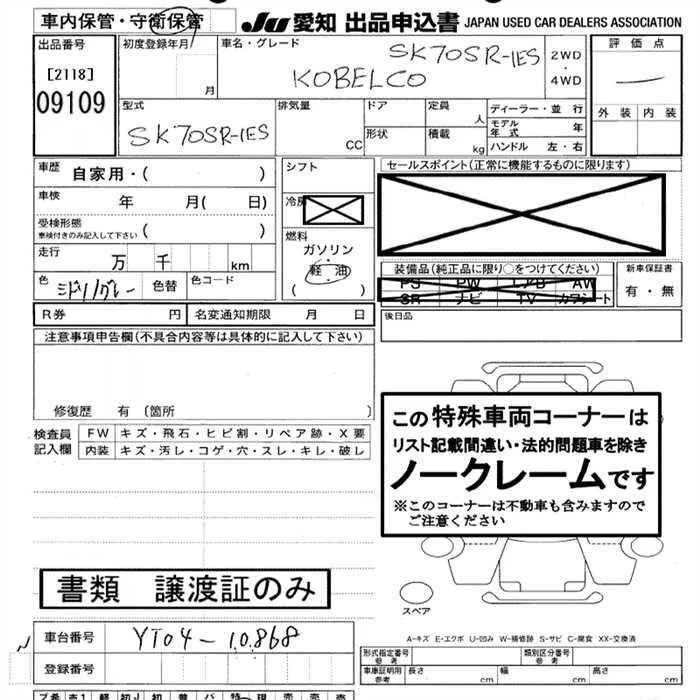 車内保管・守衛保管
JU 愛知 出品申込書 JAPAN USED CAR DEALERS ASSOCIATION
出品番号
[2118]
09109
初度登録年月
月
車名・グレード
SK70SR-1ES
KOBELCO
2WD
・
4WD
評価点
外装 内装
型式
SK70SR-1ES
排気量
CC
ドア
形状
定員
人
積載
kg
ディーラー・並行
モデル年式 年
ハンドル 左・右
車歴 自家用・( )
車検 年 月( 日)
受検形態
車検付きのみ記入して下さい ( )
走行 万 千 km
色 ミドリ/グレー 色替 色コード
シフト
冷房
燃料
ガソリン・
軽油
( )
セールスポイント(正常に機能するものに限ります)
装備品(純正品に限り○をつけてください)
PS PW エアB AW
SR ナビ TV カワシート
新車保証書
有・無
R券 円 名変通知期限 月 日
後日品
注意事項申告欄(不具合内容等は具体的に記入して下さい)
修復歴 有 〔箇所 〕
検査員
記入欄
FW キズ・飛石・ヒビ割・リペア跡・X要
内装 キズ・汚レ・コゲ・穴・スレ・キレ・破レ
この特殊車両コーナーは
リスト記載間違い・法的問題車を除き
ノークレームです
※このコーナーは不動車も含みますので
ご注意ください
書類 譲渡証のみ
スペア
A-キズ E-エクボ U-凹み W-補修跡 S-サビ C-腐食 XX-交換済
車台番号 YT04-10868
登録番号
形式指定番号
参考
類別区分番号
参考
車庫証明用
参考
長さ cm 幅 cm 高さ cm